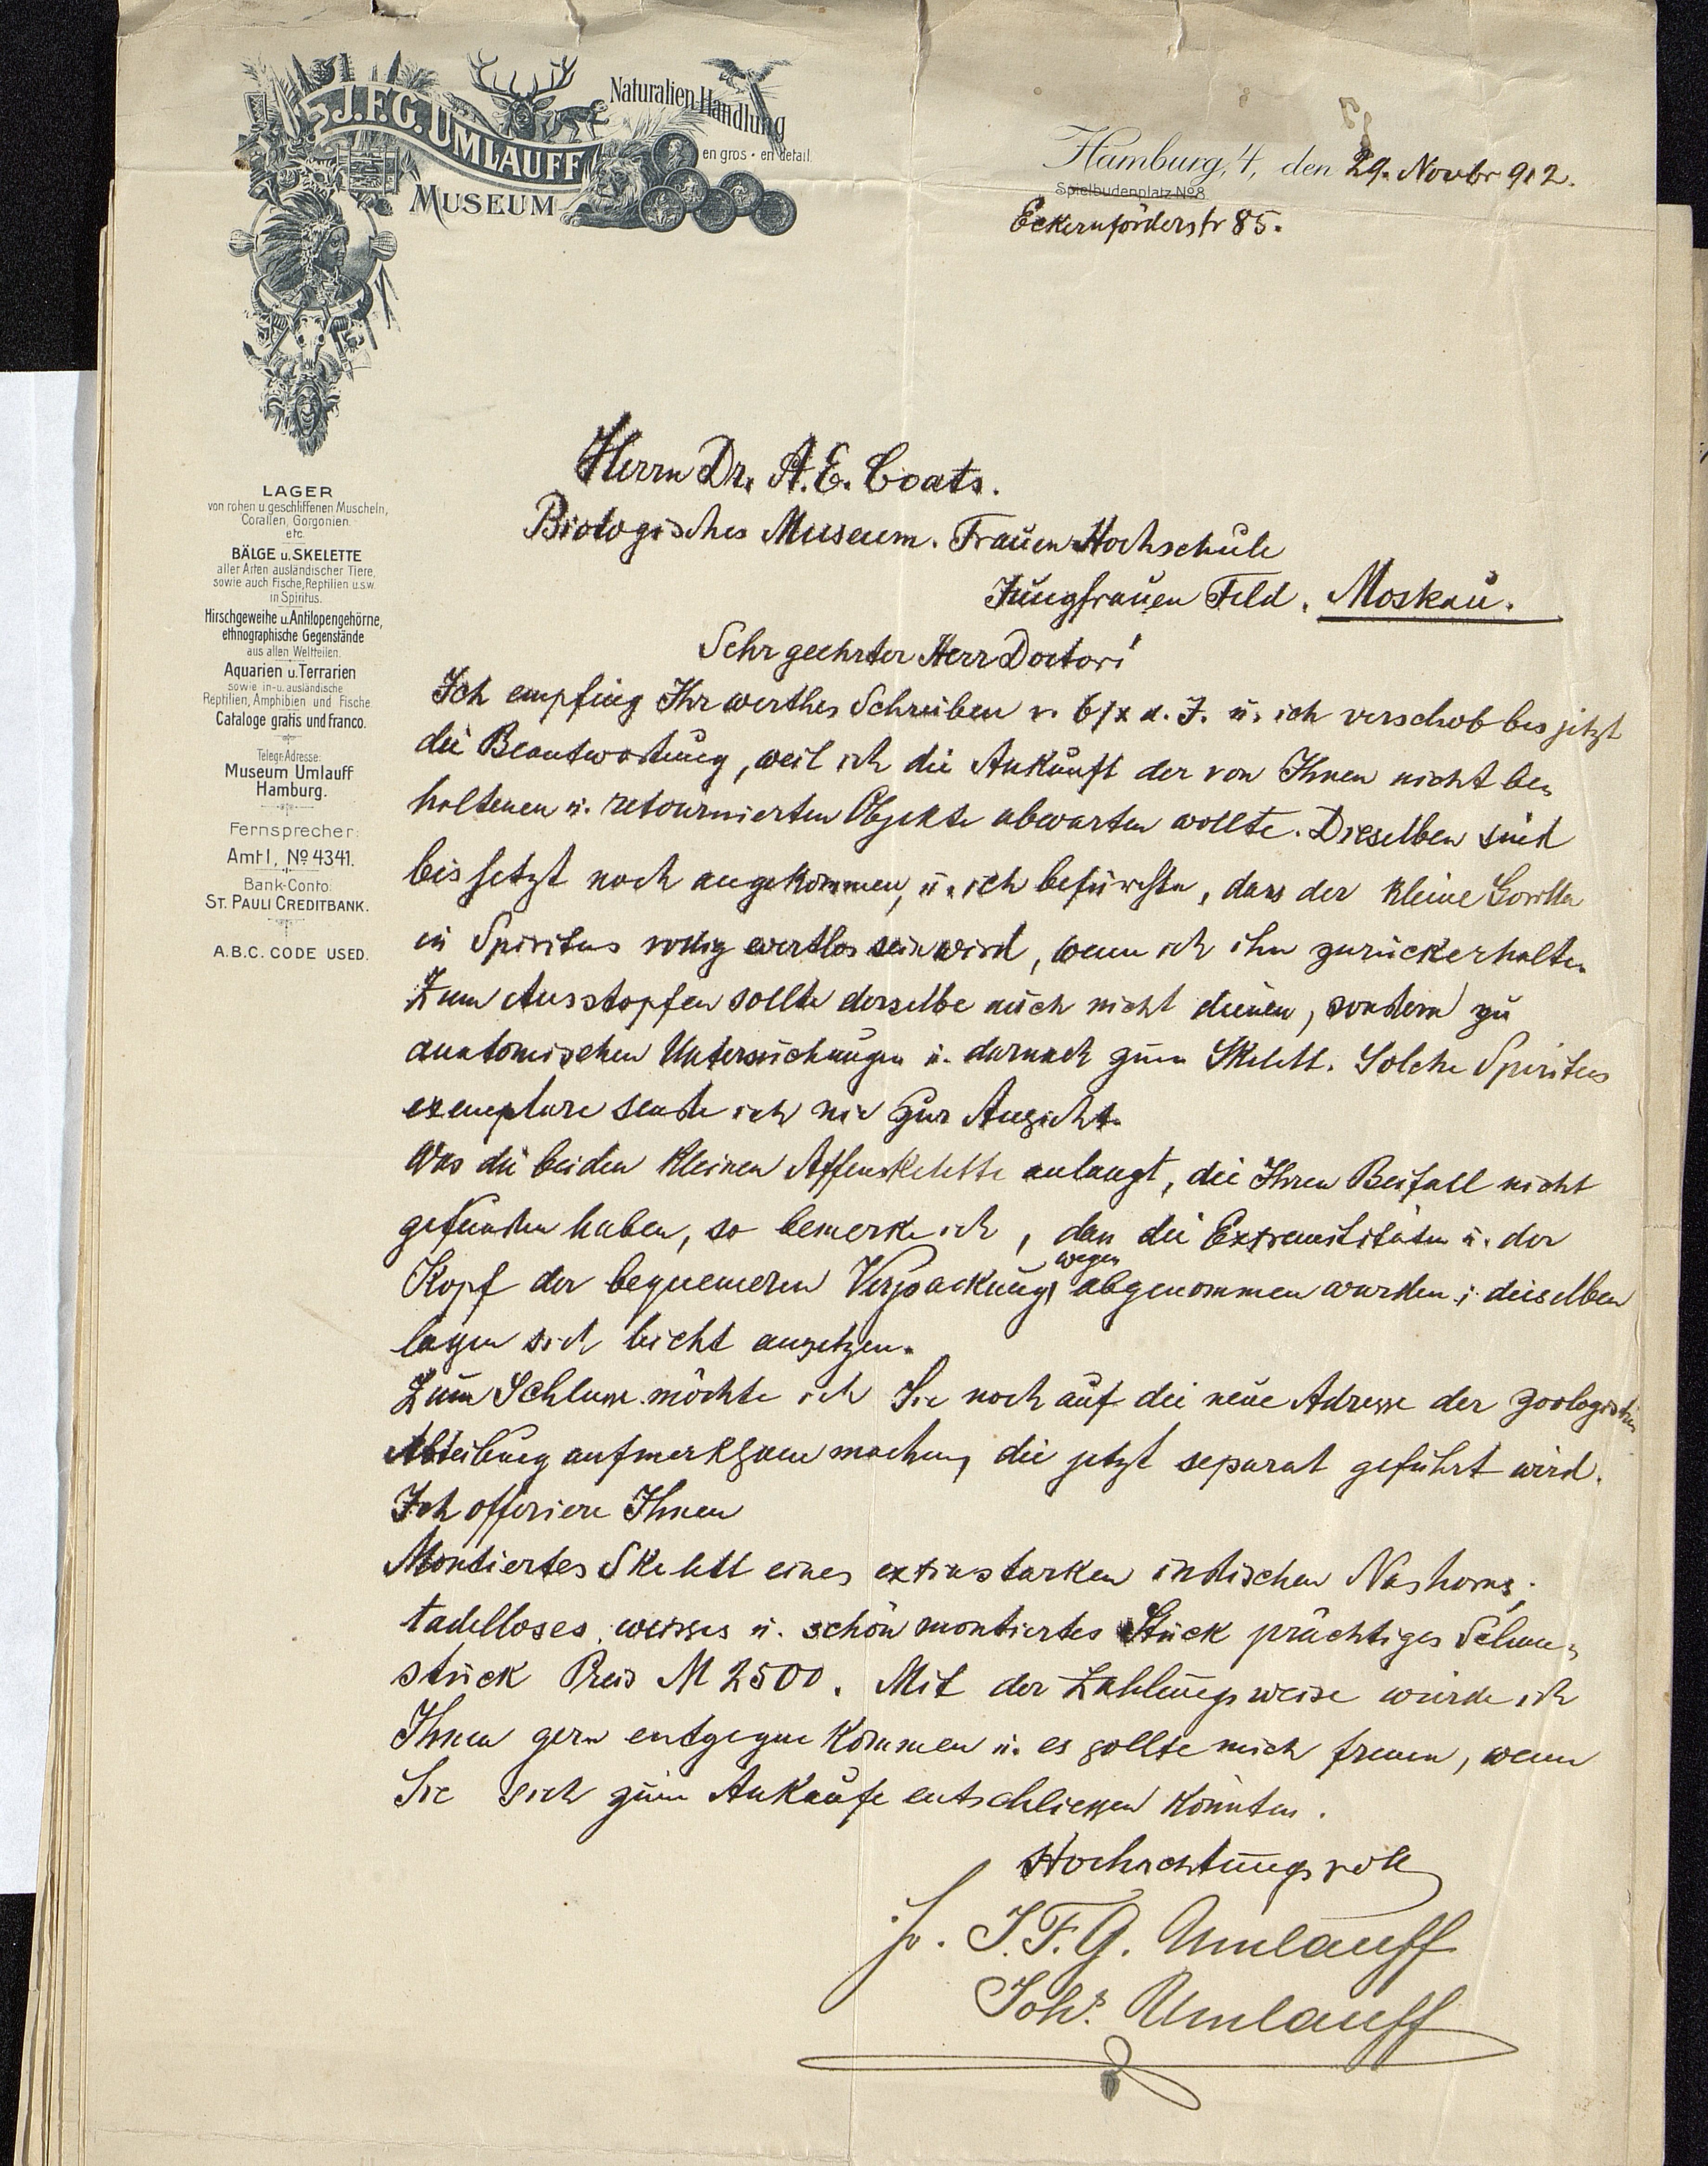 J.F.G. UMLAUFF
MUSEUM
Naturalien-Handlung
en gros • en detail.
Hamburg, 4, den 29. Novbr 912.
Spielbudenplatz No 8
Eckernförderstr 85.
LAGER
von rohen u. geschliffenen Muscheln,
Corallen, Gorgonien.
etc.
BÄLGE u. SKELETTE
aller Arten ausländischer Tiere,
sowie auch Fische, Reptilien u.s.w.
in Spiritus.
Hirschgeweihe u. Antilopengehörne,
ethnographische Gegenstände
aus allen Weltteilen.
Aquarien u. Terrarien
sowie in- u. ausländische
Reptilien, Amphibien und Fische.
Cataloge gratis und franco.
Telegr. Adresse:
Museum Umlauff
Hamburg.
Fernsprecher:
Amt I, No 4341.
Bank-Conto:
ST. PAULI CREDITBANK.
A.B.C. CODE USED.
Herrn Dr. A. E. Coats.
Biologisches Museum. Frauen Hochschule
Jungfrauen Feld. Moskau.
Sehr geehrter Herr Doctor!
Ich empfing Ihr werthes Schreiben v. 6/X d. J. u. ich verschob bis jetzt
die Beantwortung, weil ich die Ankunft der von Ihnen nicht be-
haltenen u. retournierten Objekte abwarten wollte. Dieselben sind
bis jetzt noch angekommen, u. ich befürchte, dass der kleine Gorilla
in Spiritus völlig wertlos sein wird, wenn ich ihn zurückerhalte.
Zum Ausstopfen sollte derselbe auch nicht dienen, sondern zu
anatomischen Untersuchungen u. darnach zum Skelett. Solche Spiritus
exemplare sende ich nie zur Ansicht.
Was die beiden kleinen Affenskelette anlangt, die Ihren Beifall nicht
gefunden haben, so bemerke ich, dass die Extremitäten u. der
Kopf der bequemeren Verpackung wegen abgenommen wurden; dieselben
lassen sich leicht ansetzen.
Zum Schlusse möchte ich Sie noch auf die neue Adresse der zoologischen
Abteilung aufmerksam machen, die jetzt separat geführt wird.
Ich offeriere Ihnen
Montiertes Skelett eines extrastarken indischen Nashorns,
tadelloses, weisses u. schön montiertes Stück prächtiges Schau-
stück Preis M 2500. Mit der Zahlungsweise würde ich
Ihnen gern entgegen kommen u. es sollte mich freuen, wenn
Sie sich zum Ankaufe entschliessen könnten.
Hochachtungsvoll
J. F. G. Umlauff
Johs. Umlauff